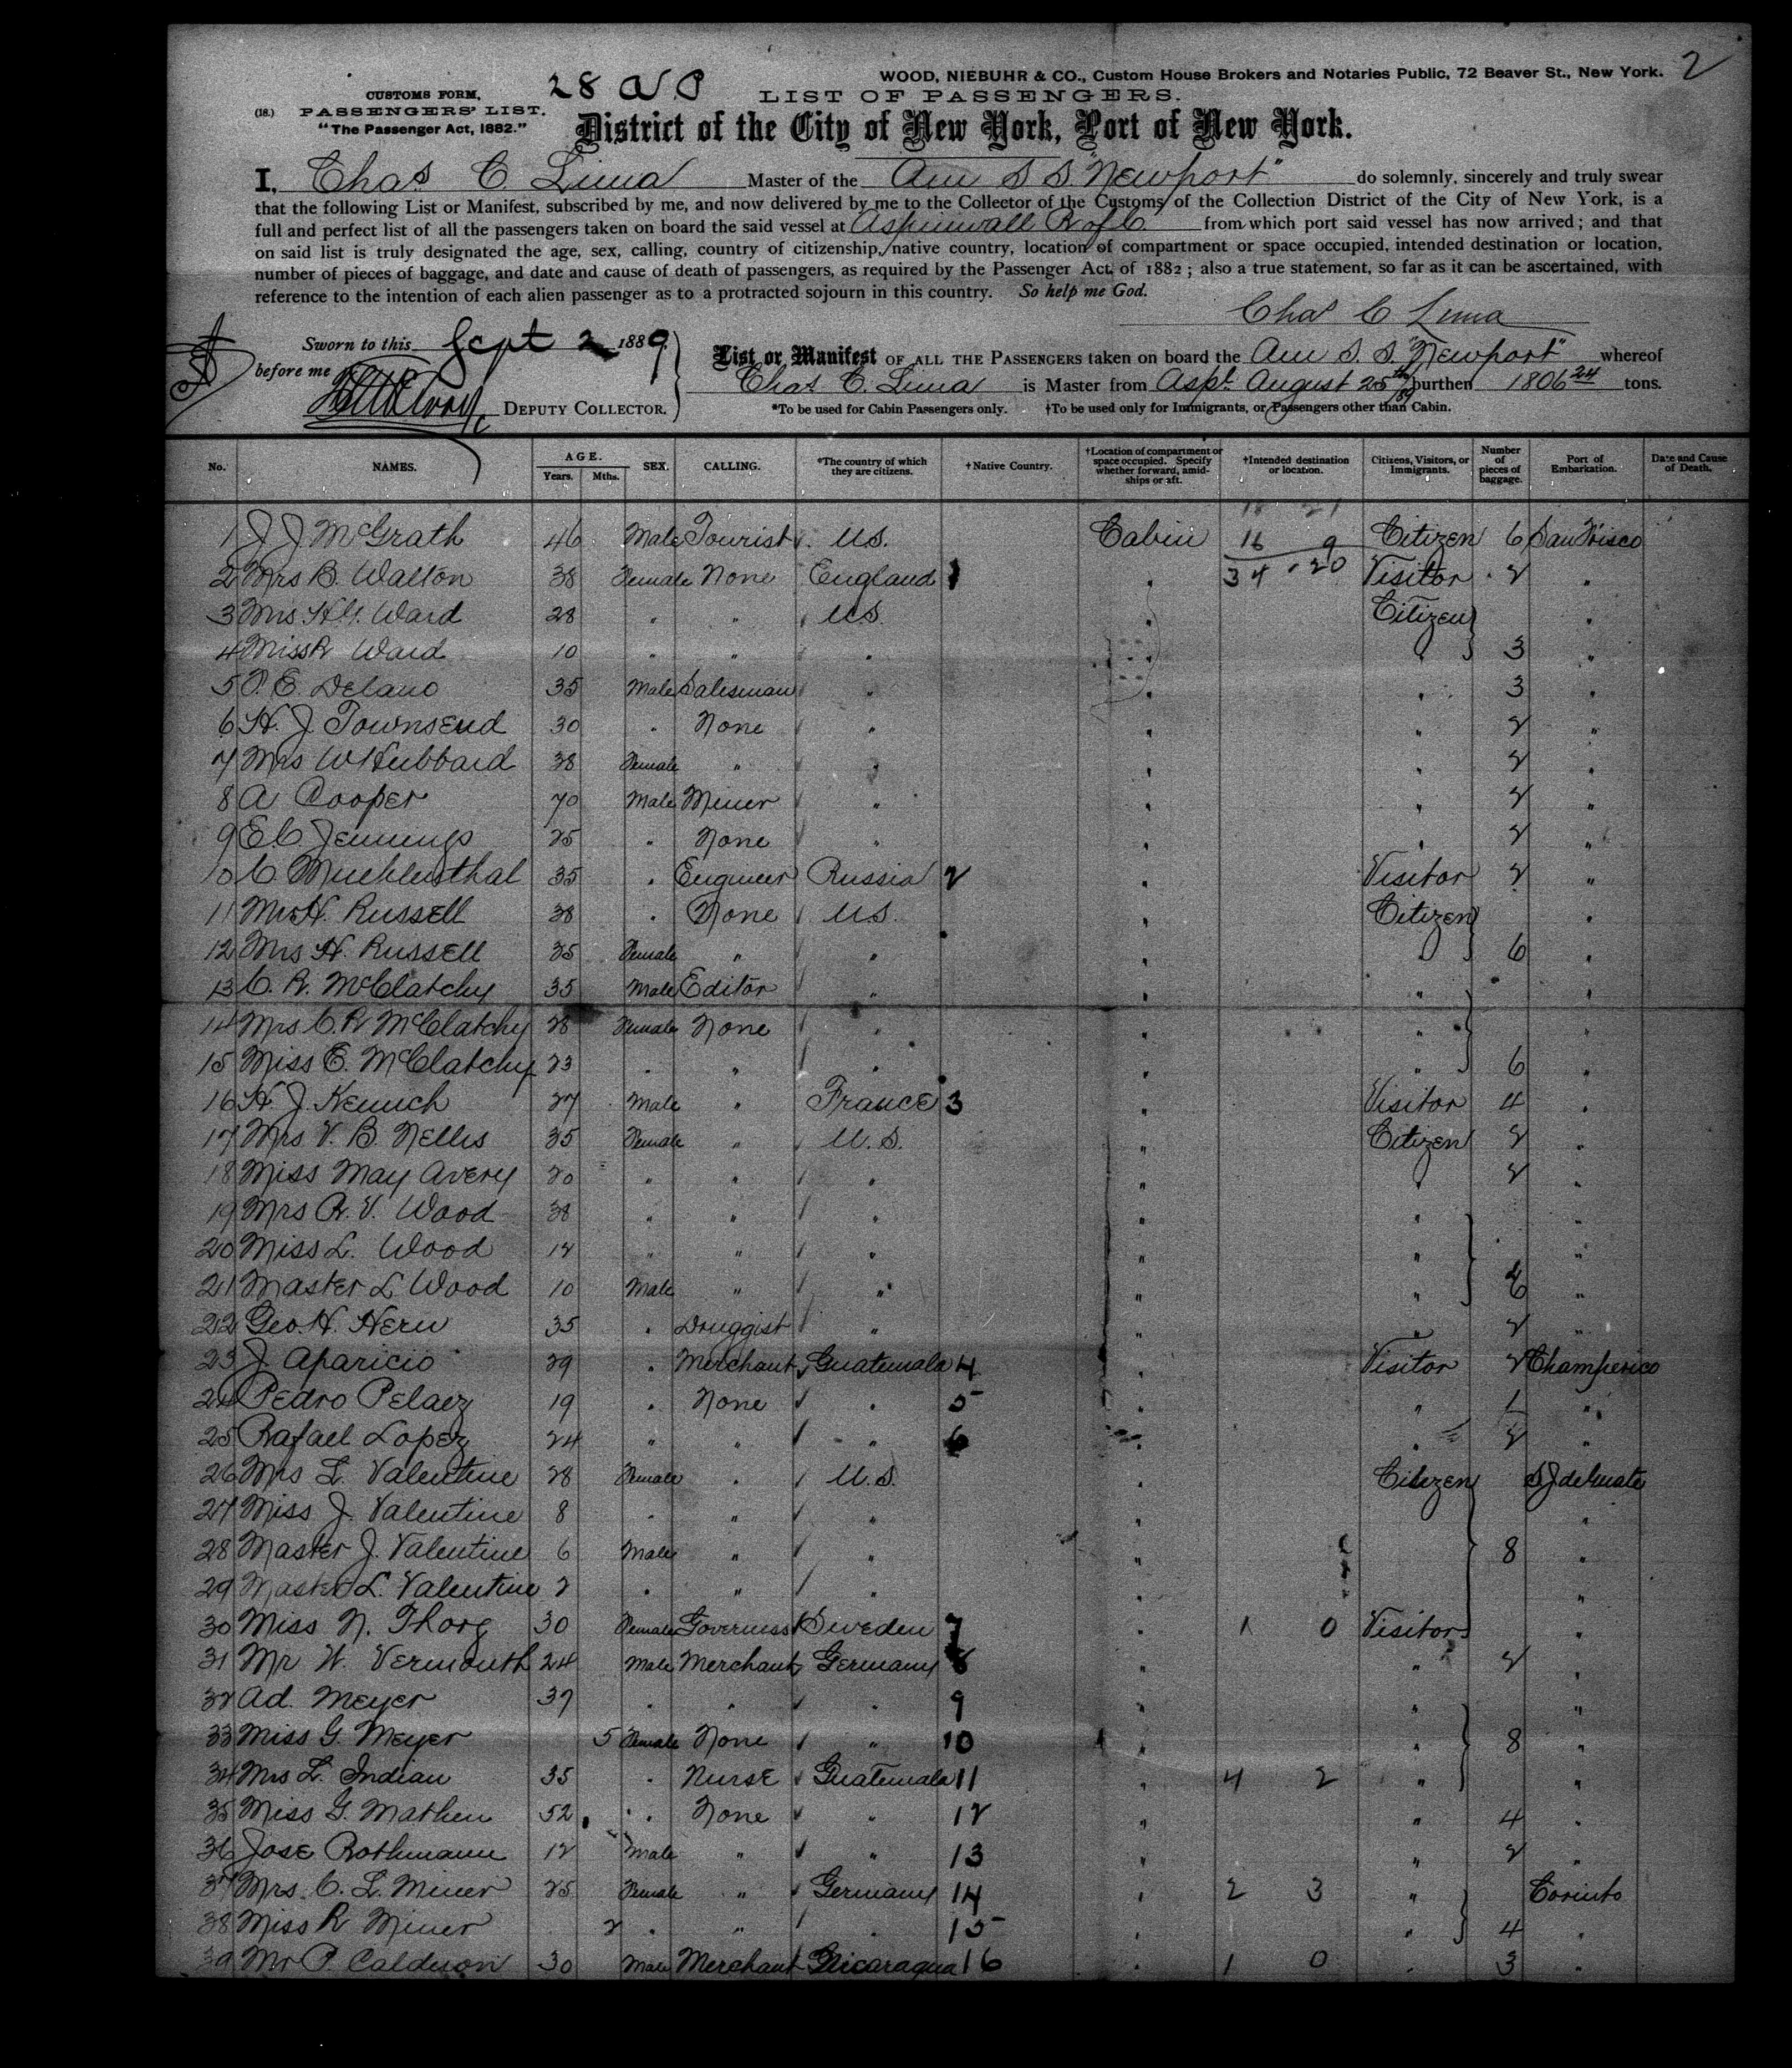 2
28 
WOOD, NIEBUHR & CO., Custom House Brokers and Notaries Public, 72 Beaver St., New York.
CUSTOMS FORM,
(18.) PASSENGERS' LIST.
"The Passenger Act, 1882."
LIST OF PASSENGERS.
District of the City of New York, Port of New York.
I, Chas C. Lima Master of the Am S S. "Newport" do solemnly, sincerely and truly swear
that the following List or Manifest, subscribed by me, and now delivered by me to the Collector of the Customs of the Collection District of the City of New York, is a
full and perfect list of all the passengers taken on board the said vessel at Aspinwall R of C. from which port said vessel has now arrived; and that
on said list is truly designated the age, sex, calling, country of citizenship, native country, location of compartment or space occupied, intended destination or location,
number of pieces of baggage, and date and cause of death of passengers, as required by the Passenger Act, of 1882; also a true statement, so far as it can be ascertained, with
reference to the intention of each alien passenger as to a protracted sojourn in this country. So help me God.
Chas C Lima
Sworn to this Sept 2 1889
before me
DEPUTY COLLECTOR.
List or Manifest OF ALL THE PASSENGERS taken on board the Am S. S. "Newport" whereof
Chas C. Lima is Master from Aspl. August 25th/89 burthen 1806 24 tons.
*To be used for Cabin Passengers only. †To be used only for Immigrants, or Passengers other than Cabin.
No. NAMES. AGE. Years. Mths. SEX. CALLING. *The country of which they are citizens. †Native Country. †Location of compartment or space occupied. Specify whether forward, amidships or aft. †Intended destination or location. Citizens, Visitors, or Immigrants. Number of pieces of baggage. Port of Embarkation. Date and Cause of Death.
18 21
1 J J McGrath 46 Male Tourist U.S. Cabin 16 9 Citizen 6 San F'isco
2 Mrs B. Walton 38 Female None England 1 " 34 20 Visitor 2 "
3 Mrs H. Y. Ward 28 " " U.S. " Citizen "
4 Miss R Ward 10 " " " " " 3 "
5 P. E. Delano 35 Male Salesman " " " 3 "
6 H. J. Townsend 30 " None " " " 2 "
7 Mrs W Hubbard 38 Female " " " " 2 "
8 A Cooper 70 Male Miner " " " 2 "
9 E C Jennings 25 " None " " " 2 "
10 C. Muehlensthal 35 " Engineer Russia 2 " Visitor 2 "
11 Mr H. Russell 38 " None U.S. " Citizen "
12 Mrs H. Russell 35 Female " " " " 6 "
13 C. R. McClatchy 35 Male Editor " " " "
14 Mrs C. R McClatchy 28 Female None " " " "
15 Miss E. McClatchy 23 " " " " " 6 "
16 H. J. Kennch 27 Male " France 3 " Visitor 4 "
17 Mrs V. B. Nellis 35 Female " U.S. " Citizen 2 "
18 Miss May Avery 20 " " " " " 2 "
19 Mrs R. V. Wood 38 " " " " " "
20 Miss L. Wood 14 " " " " " "
21 Master L Wood 10 Male " " " " 6 "
22 Geo. H. Hern 35 " Druggist " " " 2 "
23 J. Aparicio 29 " Merchant Guatemala 4 " Visitor 2 Champerico
24 Pedro Pelaez 19 " None " 5 " " 1 "
25 Rafael Lopez 24 " " " 6 " " 2 "
26 Mrs L. Valentine 28 Female " U.S. " Citizen S J de Guate
27 Miss J. Valentine 8 " " " " "
28 Master J. Valentine 6 Male " " " 8 "
29 Master L. Valentine 2 " " " " "
30 Miss N. Thorg 30 Female Governess Sweden 7 " 1 0 Visitor "
31 Mr W. Vermouth 24 Male Merchant Germany 8 " " 2 "
32 Ad. Meyer 37 " " " 9 " " "
33 Miss G. Meyer 5 Female None " 10 " " 8 "
34 Mrs L. Indian 35 " Nurse Guatemala 11 " 4 2 " "
35 Miss G. Mathen 52 " None " 12 " " 4 "
36 Jose Rothmann 12 Male " " 13 " " 2 "
37 Mrs. C. L. Miner 25 Female " Germany 14 " 2 3 " Corinto
38 Miss R Miner 2 " " " 15 " " 4 "
39 Mr P. Calderon 30 Male Merchant Nicaragua 16 " 1 0 " 3 "